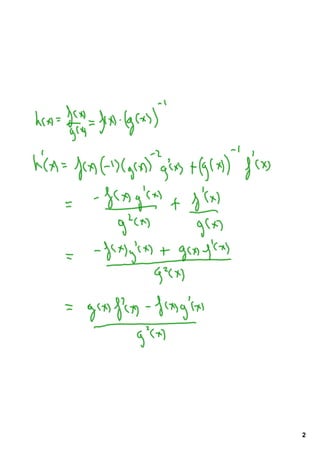 h(x) = f(x)/g(x) = f(x)·(g(x))⁻¹
h'(x) = f(x)(-1)(g(x))⁻² g'(x) + (g(x))⁻¹ f'(x)
= -f(x)g'(x)/g²(x) + f'(x)/g(x)
= (-f(x)g'(x) + g(x)f'(x))/g²(x)
= (g(x)f'(x) - f(x)g'(x))/g²(x)
2